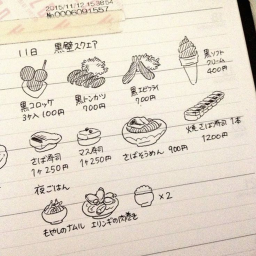 2015/11/12 15:38:54
No.0006091557
11日 黒壁スクエア
黒コロッケ
3ヶ入100円
黒トンカツ
700円
黒エビフライ
700円
黒ソフト
クリーム
400円
さば寿司
1ヶ250円
マス寿司
1ヶ250円
さばそうめん 900円
焼さば寿司 1本
1200円
夜ごはん
×2
もやしのナムル
エリンギの肉巻き